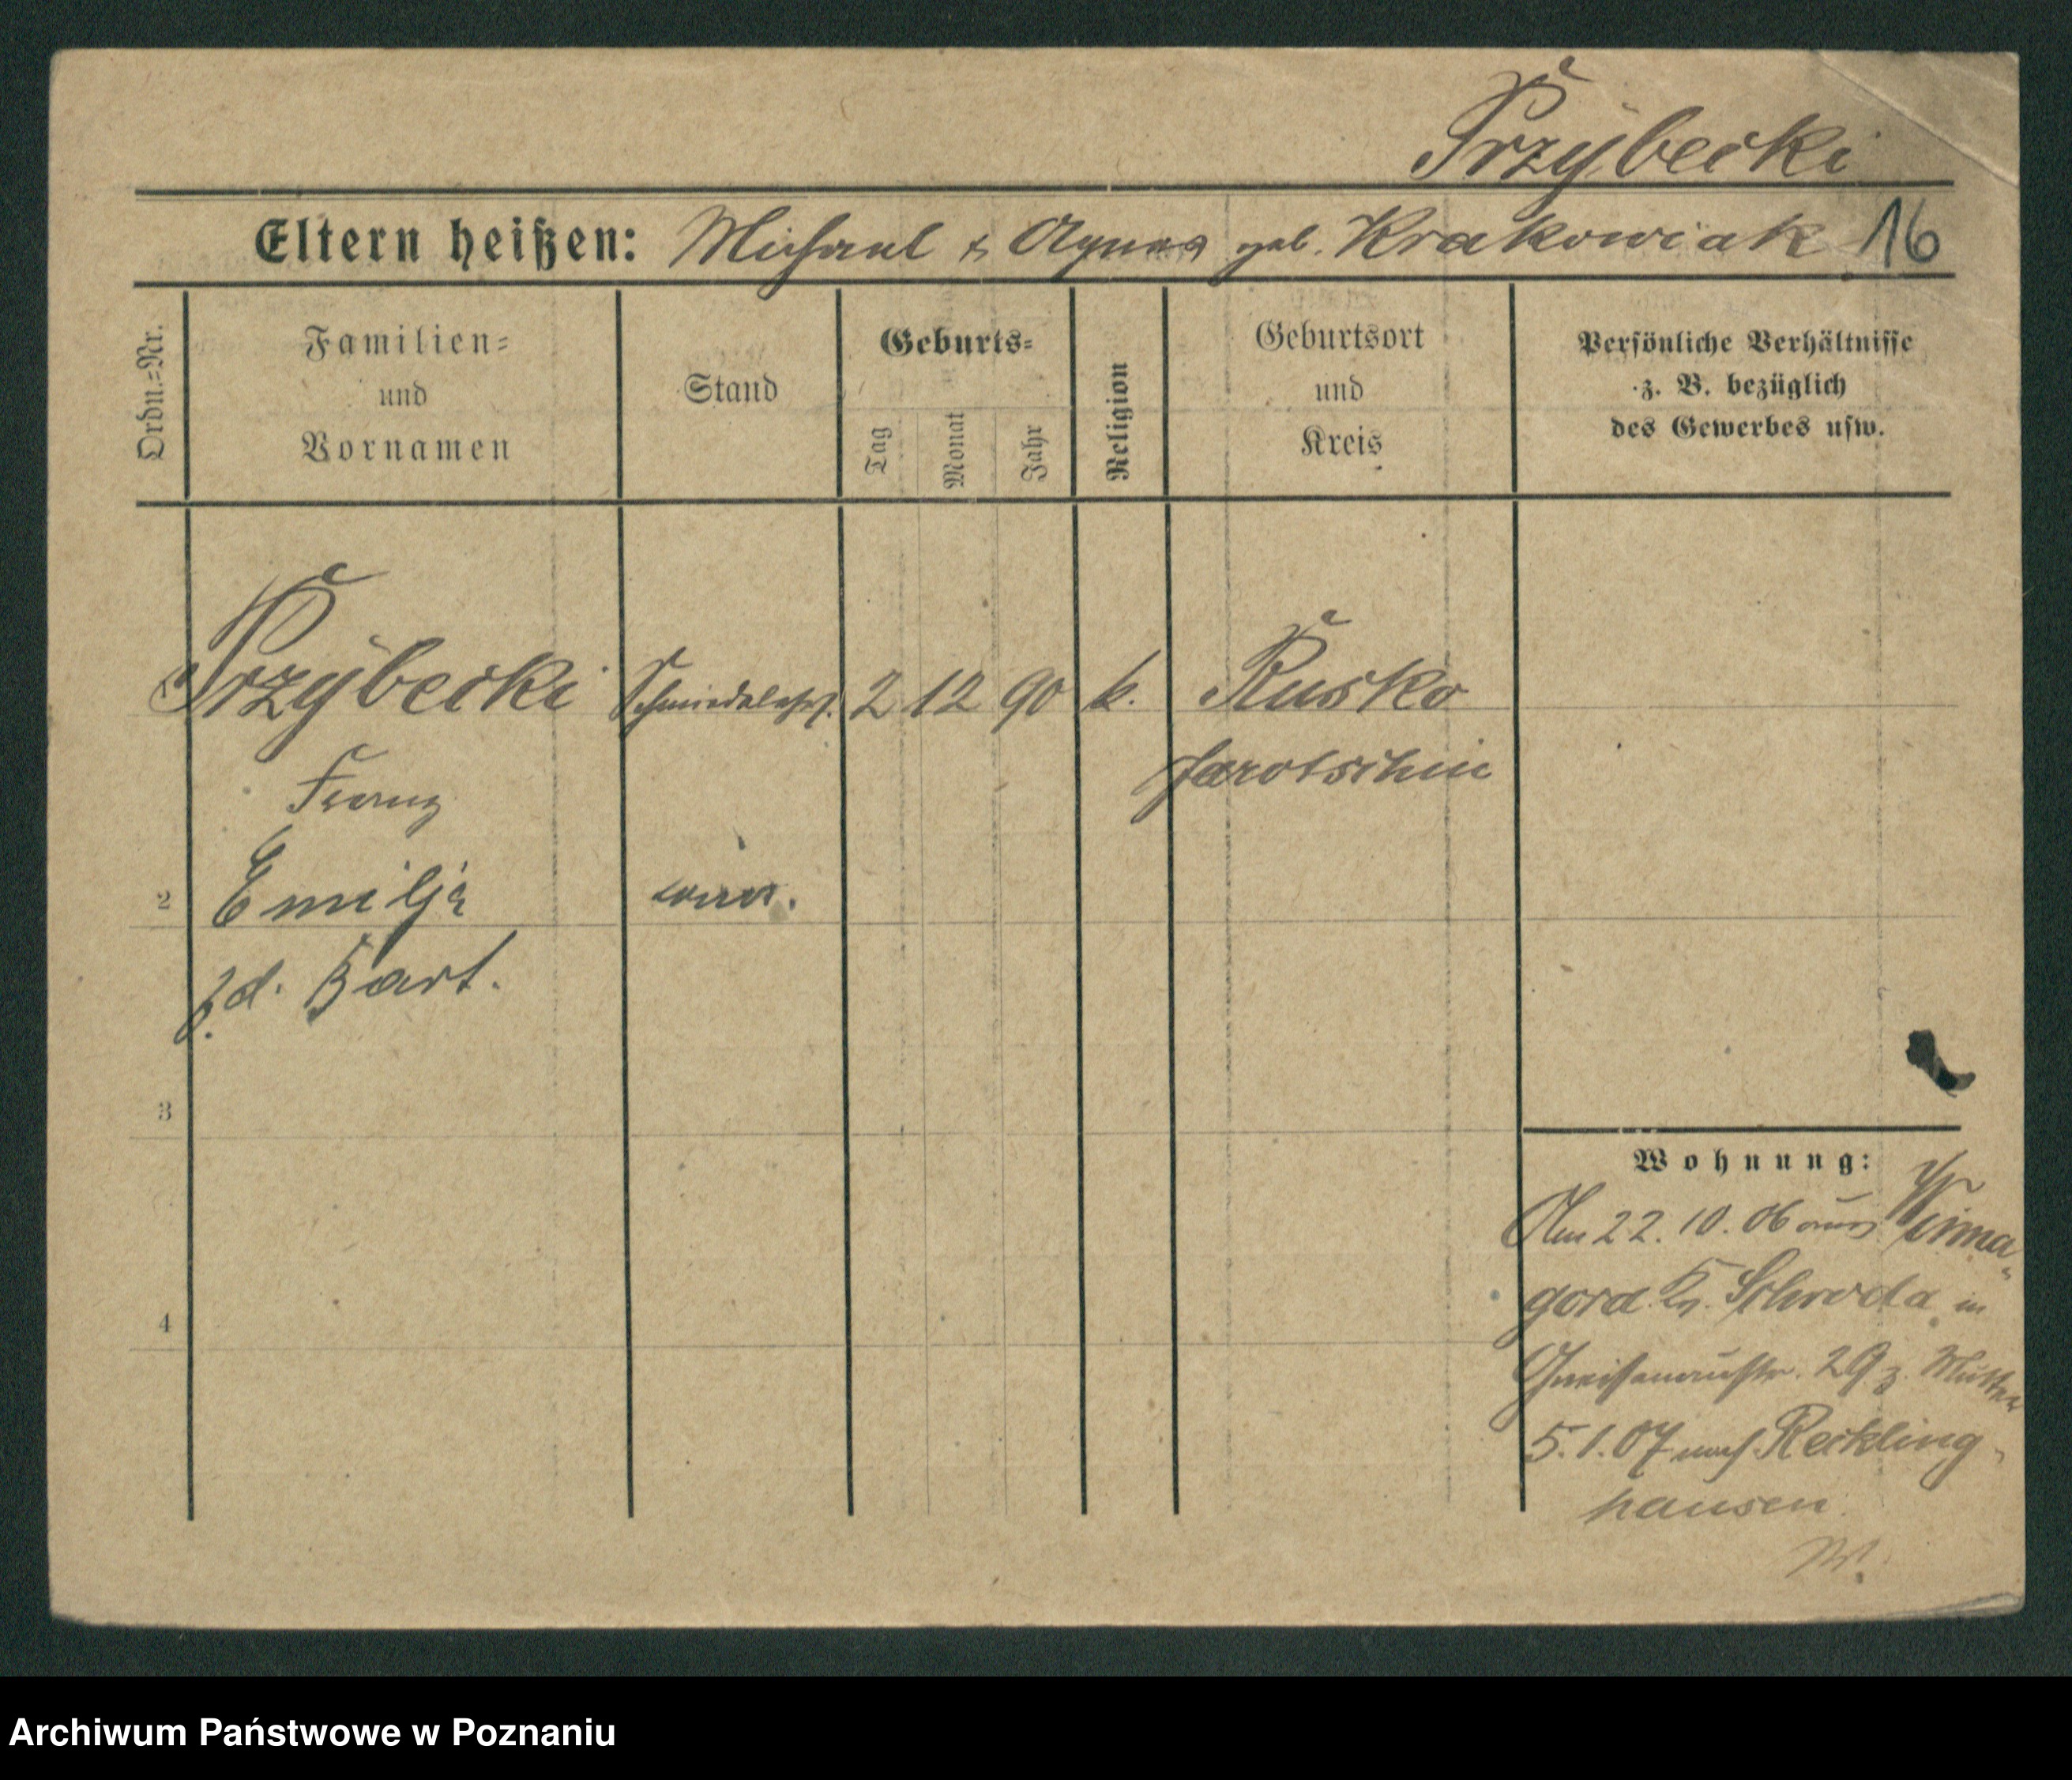 Przybecki
Eltern heißen: Michael & Agnes geb. Krakowiak 16
Ordn.=Nr.
Familien=
und
Vornamen
Stand
Geburts=
Tag
Monat
Jahr
Religion
Geburtsort
und
Kreis
Persönliche Verhältnisse
z. B. bezüglich
des Gewerbes usw.
Przybecki Schmiedelehrl. 2 12 90 k. Rusko
Franz Jarotschin
2 Emilja
Bart.
3
4
Wohnung:
Am 22. 10. 06 aus Winna
gora Kr. Schroda in
Gneisenaustr. 29 z. Mutter
5. 1. 07 nach Reckling
hausen
Archiwum Państwowe w Poznaniu